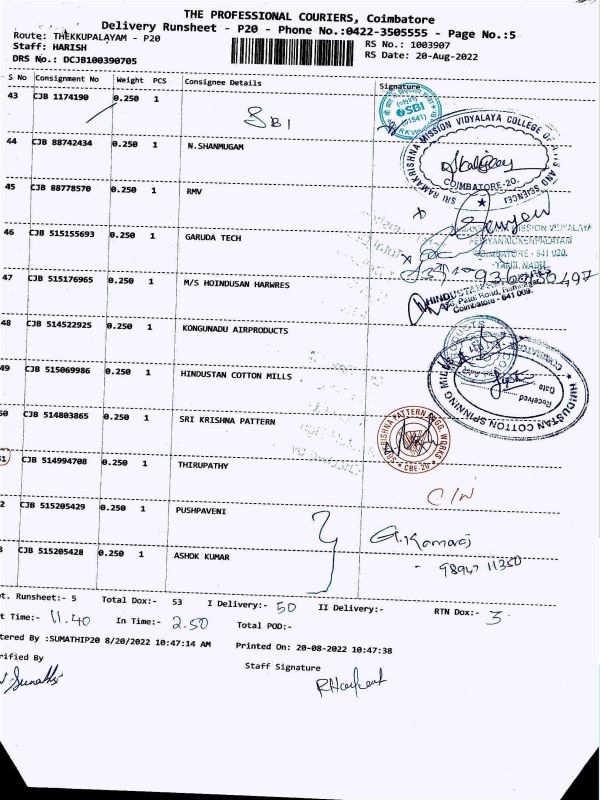 THE PROFESSIONAL COURIERS, Coimbatore
Delivery Runsheet - P20 - Phone No.:0422-3505555 - Page No.:5
Route: THEKKUPALAYAM - P20
RS No.: 1003907
Staff: HARISH
RS Date: 20-Aug-2022
DRS No.: DCJB100390705
S No Consignment No Weight PCS Consignee Details Signature
43 CJB 1174190 0.250 1 SBI
SBI
44 CJB 88742434 0.250 1 N.SHANMUGAM
SRI RAMAKRISHNA MISSION VIDYALAYA COLLEGE OF ARTS AND SCIENCE
COIMBATORE-20.
45 CJB 88778570 0.250 1 RMV
MISSION VIDYALAYA
PERIYANAICKENPALAYAM
COIMBATORE - 641 020.
TAMIL NADU
46 CJB 515155693 0.250 1 GARUDA TECH
47 CJB 515176965 0.250 1 M/S HOINDUSAN HARWRES
HINDUSTAN
Coimbatore - 641 009.
48 CJB 514522925 0.250 1 KONGUNADU AIRPRODUCTS
49 CJB 515069986 0.250 1 HINDUSTAN COTTON MILLS
HINDUSTAN COTTON SPINNING MILLS
COIMBATORE
Received
Date
50 CJB 514803865 0.250 1 SRI KRISHNA PATTERN
SRI KRISHNA PATTERN ENGG. WORKS
CBE-20
51 CJB 514994708 0.250 1 THIRUPATHY
C/N
2 CJB 515205429 0.250 1 PUSHPAVENI
G.Kamaraj
3 CJB 515205428 0.250 1 ASHOK KUMAR
98947 11350
ot. Runsheet:- 5 Total Dox:- 53 I Delivery:- 50 II Delivery:- RTN Dox:- 3
t Time:- 11.40 In Time:- 2.50 Total POD:-
tered By :SUMATHIP20 8/20/2022 10:47:14 AM Printed On: 20-08-2022 10:47:38
rified By Staff Signature